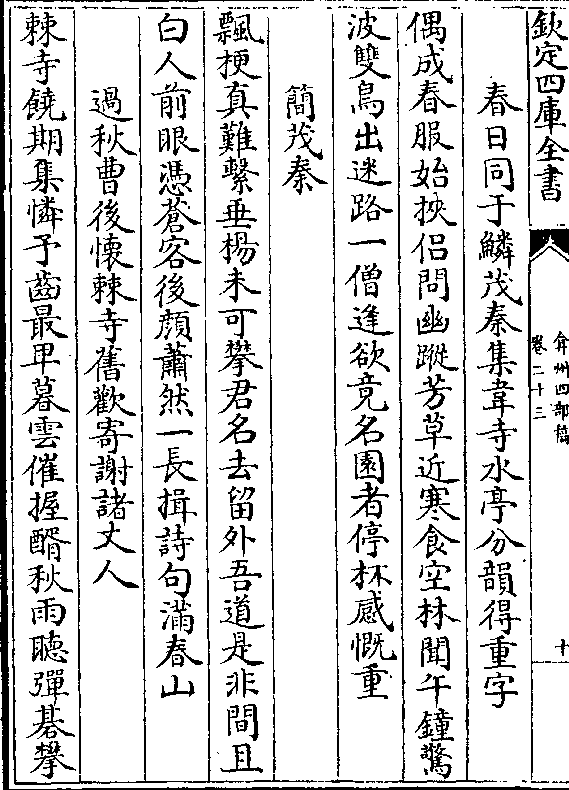 欽定四庫全書
弇州四部稿
卷二十三
十
春日同于鱗茂秦集韋寺水亭分韻得重字
偶成春服始挾侣問幽蹤芳草近寒食空林聞午鐘驚
波雙鳥出迷路一僧逢欲竟名園者停杯感慨重
簡茂秦
飄梗真難繫垂楊未可攀君名去留外吾道是非間且
白人前眼憑蒼客後顔蕭然一長揖詩句滿春山
過秋曹後懷棘寺舊歡寄謝諸丈人
棘寺饒期集憐予齒最卑暮雲催握醑秋雨聽彈棊攀